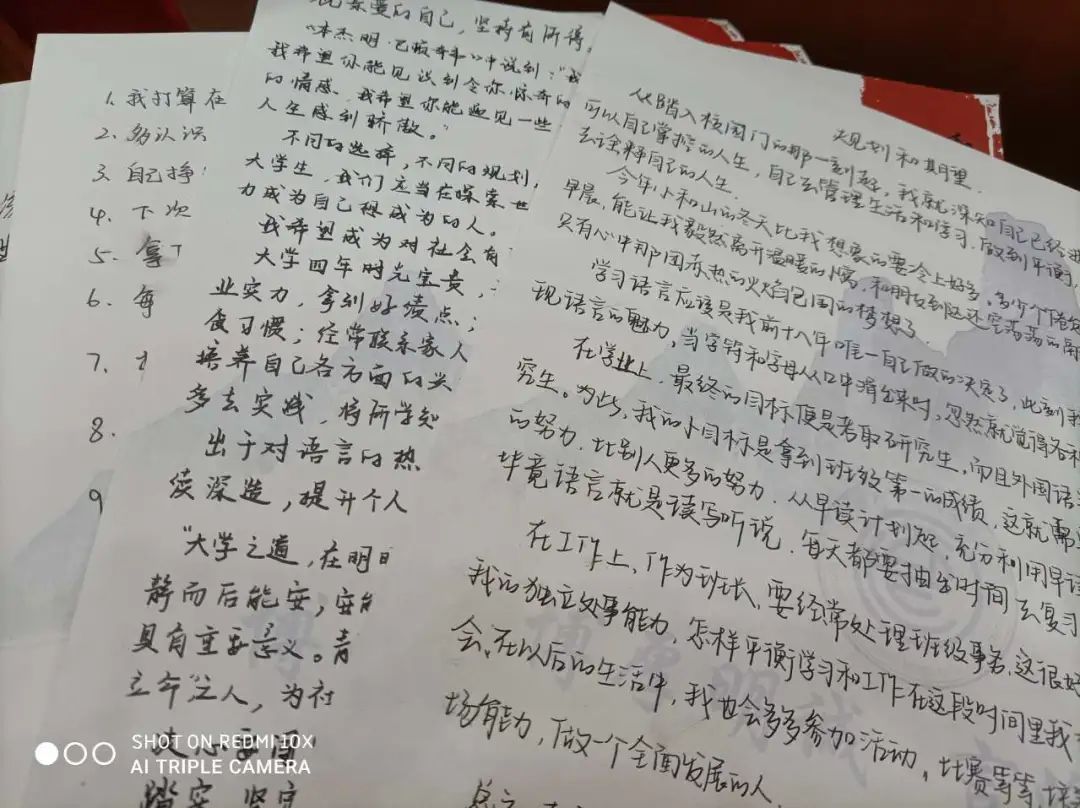 1. 我打算在
2. 多认识
3. 自己挣
4. 下次
5. 拿
6. 每
7.
8.
9
的自己，坚持有所得。
《本杰明·巴顿奇事》中说到：“我
我希望你能见识到令你惊奇的
的情感，我希望你能遇见一些
人生感到骄傲。”
不同的选择，不同的规划，
大学生，我们应当在探索
力成为自己想成为的人。
我希望成为对社会有
大学四年时光宝贵，
业实力，拿到好绩点；
食习惯；经常联系家人
培养自己各方面的兴
多去实践，将所学知
出于对语言的热
续深造，提升个人
“大学之道，在明
静而后能安，安
具有重要意义。青
立命之人，为社
踏实，坚定
规划和期望
从踏入校园门的那一刻起，我就深知自己已经
可以自己掌控的人生，自己去管理生活和学习，做到平衡，
去诠释自己的人生。
今年小和山的冬天比我想象的要冷上好多，多少个
早晨，能让我毅然离开温暖的，和朋友到这还空荡荡的
只有心中那团炙热的火焰包围的梦想了。
学习语言应该是我前十八年唯一自己做的决定了，此刻我
现语言的魅力，当字符和字母从口中滑出来时，忽然就觉得各
在学业上，最终的目标便是考取研究生，而且外国语
究生。为此，我的小目标是拿到班级第一的成绩，这就需
的努力，比别人更多的努力。从早读计划起，充分利用早读
毕竟语言就是读写听说，每天都要抽出时间去复习
在工作上，作为班长，要经常处理班级事务，这很好
我的独立处事能力，怎样平衡学习和工作在这段时间里我
会。在以后的生活中，我也会多多参加活动，比赛等等，培
场能力，做一个全面发展的人。
博 明 诚
SHOT ON REDMI 10X
AI TRIPLE CAMERA